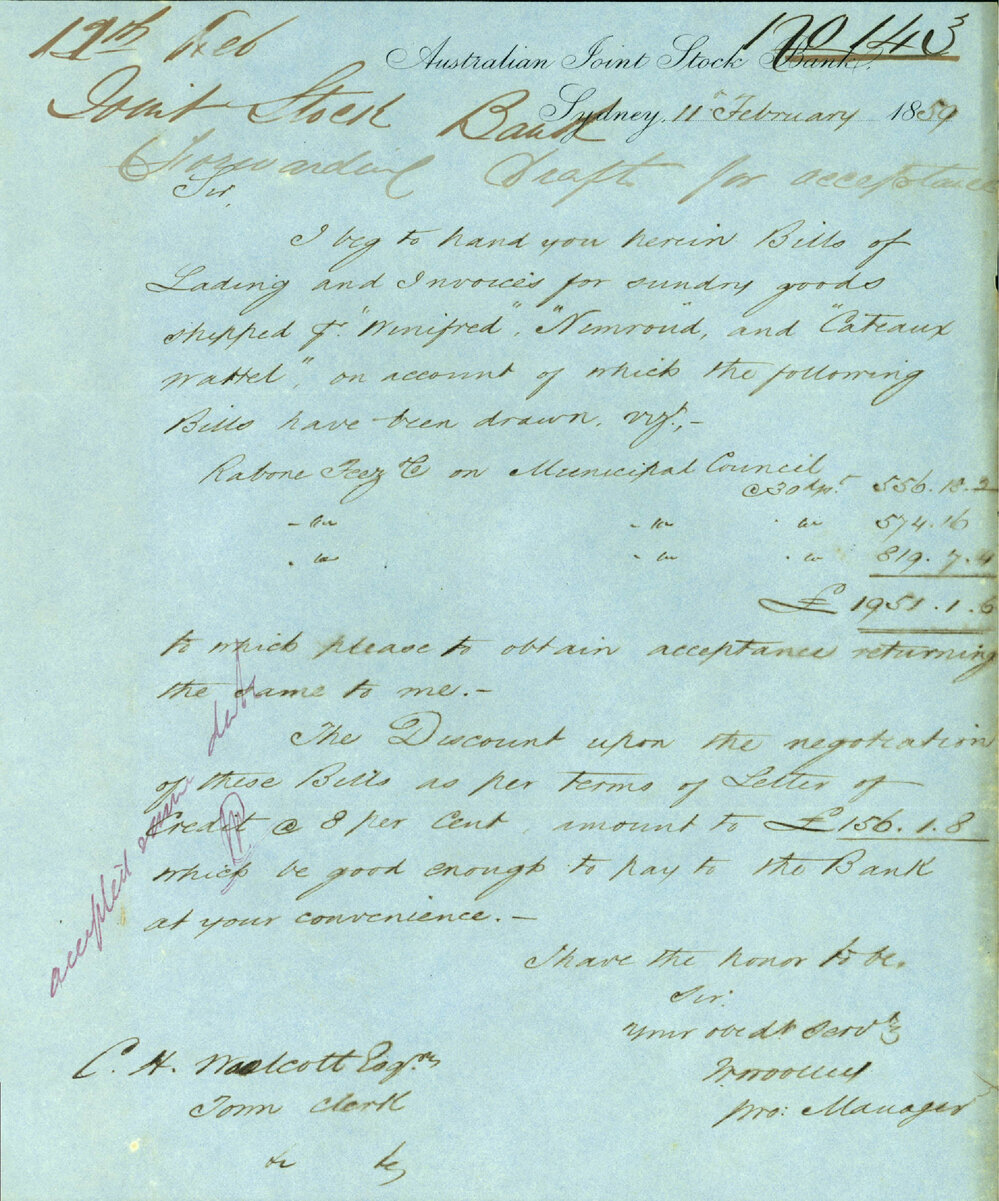 12th Feb
No 143
Australian Joint Stock Bank,
Joint Stock Bank
Sydney, 11th February 1859
Forwarding Drafts for acceptance
Sir,
I beg to hand you herein Bills of
Lading and Invoices for sundry goods
shipped pr "Winifred", "Nimroud", and "Cateaux
Wattel", on account of which the following
Bills have been drawn, vizt,-
Rabone Feez & Co on Municipal Council
@30 dp. 556.18.2
" " " 574.16
" " " 819.7.4
£1951.1.6
to which please to obtain acceptance returning
the same to me.-
The Discount upon the negotiation
of these Bills as per terms of Letter of
Credit @ 8 per Cent, amount to £156.1.8
which be good enough to pay to the Bank
at your convenience.-
accepted same date
I have the honor to be,
Sir,
Your obedt Servt
pro: Manager
C. H. Woolcott Esqre
Town Clerk
&c &c